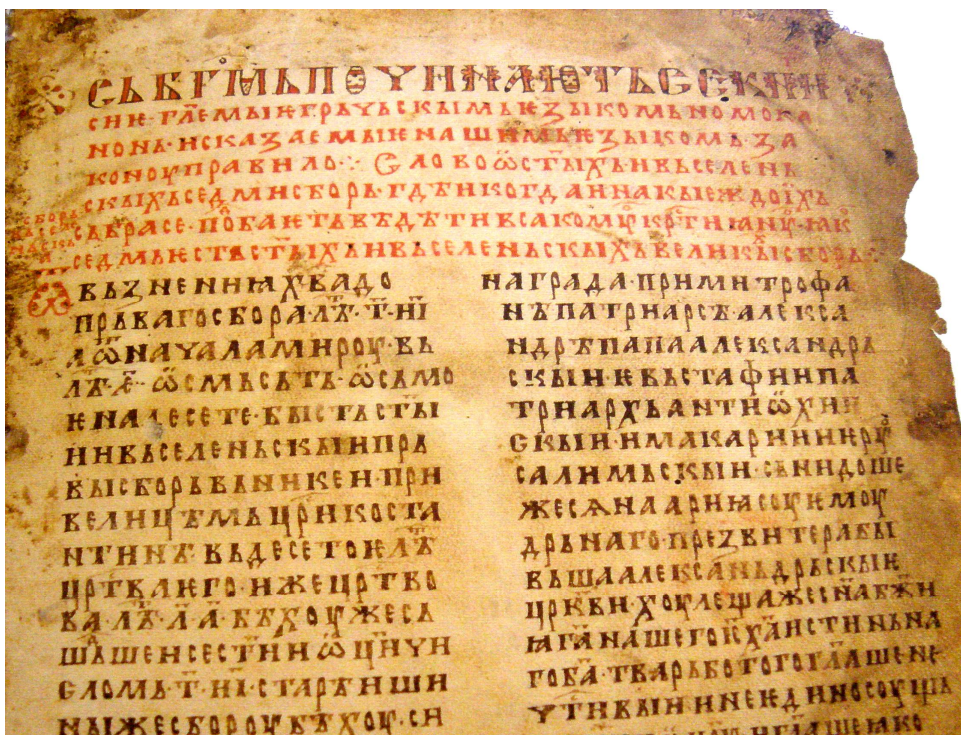 СЬБГМЬПОЧИНАЮТЬСЕКНИ
СИЕ·ГЛЕМЫѤГРЬЧЬСКЫМЬѤЗЫКОМЬНОМОКА
НОНЬ·ИСКАЗАЕМЫѤНАШИМЬѤЗЫКОМЬЗА
КОНОУПРАВИЛО·:·СЛОВОѾСТЫХЬИВЬСЕЛЕНЬ
СКЫХЬСЕДМИСБОРЬ·ГДѢИКОГДАИНАКЫЕЖДОЇХЬ
СЬБРАСЕ·ПОБАЮТЬВѢДѢТИВСАКОМꙊКРТИꙖНꙊ·ꙖК
СЕДМЬЕСТЬСТЫХЬИВЬСЕЛЕНЬСКЫХЬВЕЛИКЫХСБОРЬ·:
ВЬꙀНЕНИꙖХВАДО
ПРЬВАГОСБОРАЛѢ·Т·НІ
АѾНАЧАЛАМИРОУ·ВЬ
ЛѢ·Е·ѾСМЬСЬТЬ·ѾСЬМО
ѤНАДЕСЕТЕ·БЫСТЬСТЫ
ИИВЬСЕЛЕНЬСКЫИПРЬ
ВЫСБОРЬВЬНИКЕИ·ПРИ
ВЕЛИЦѢМЬЦРИКОСТА
НТИНѢ·ВЬДЕСЕТОѤЛѢ
ЦРТВАѤГО·ИЖЕЦРТВО
ВА·ЛѢ·Л·А·БѢХОУЖЕСЬ
ШЬШЕИСЕСТИИѾЦИЧИ
СЛОМЬ·Т·НІ·СТАРѢИШИ
НЫЖЕСБОРОУБѢХОУ·СИ
НАГРАДА·ПРИМИТРОФА
НѢПАТРИАРСѢ·АЛЕКСА
НДРѢПАПААЛЕКСАНДРЬ
СКЫИ·ѤВЬСТАФИИПА
ТРИАРХЬАНТИѾХИИ
СКЫИ·ИМАКАРИИИѤРꙊ
САЛИМЬСКЫИ·СЬНИДОШЕ
ЖЕСѦНААРИꙖСОУЕМОУ
ДРЬНАГО·ПРЕꙀВИТЕРАБЫ
ВЬШААЛЕКСАНЬДРЬСКЫѤ
ЦРКВИ·ХОУЛЕЩАЖЕСНАБЖИ
ꙖГАНАШЕГОІХАИСТИНЬНА
ГОБА·ТВАРЬБОТОГОГЛАШЕНЕ